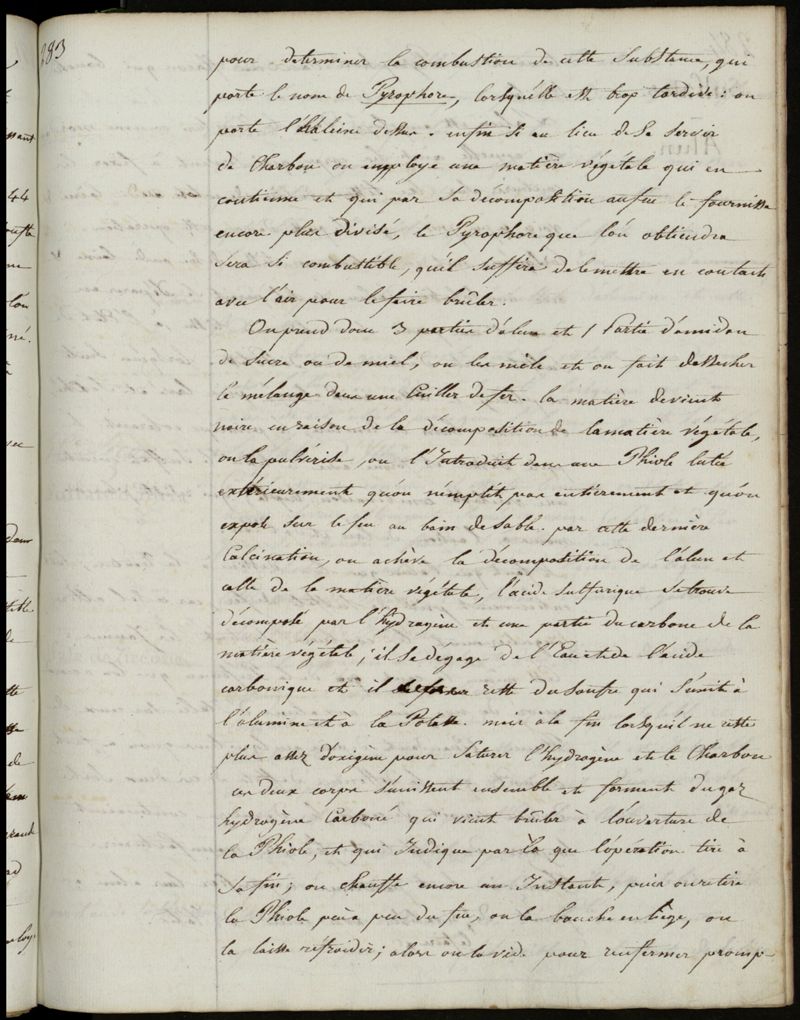 283
pour determiner la combustion de cette substance, qui
porte le nom de Pyrophore, lorsqu'elle est trop tardive : on
porte l'haleine dessus. enfin si au lieu de se servir
de Charbon on employe une matière végétale qui en
contienne et qui par sa decomposition au feu le fournisse
encore plus divisé, le Pyrophore que l'on obtiendra
sera si combustible, qu'il suffira de le mettre en contact
avec l'air pour le faire brûler.
On prend donc 3 parties d'alun et 1 Partie d'amidon
de sucre ou de miel, on les mêle et on fait dessecher
le mélange dans une Cuiller de fer. la matière devient
noire en raison de la décomposition de la matière végétale,
on la pulvérise, on l'Introduit dans une Phiole lutée
extérieurement qu'on n'emplit pas entièrement et qu'on
expose sur le feu au bain de sable. par cette dernière
Calcination, on achève la décomposition de l'alun et
celle de la matière végétale, l'acide sulfurique se trouve
décomposé par l'hydrogène et une partie du carbone de la
matière végétale; il se dégage de l'Eau et de l'acide
carbonique et il reste du soufre qui s'unit à
l'alumine et à la Potasse. mais à la fin lorsqu'il ne reste
plus assez d'oxigène pour saturer l'hydrogène et le Charbon
ces deux corps s'unissent ensemble et forment du gaz
hydrogène Carboné qui vient brûler à l'ouverture de
la Phiole, et qui Indique par là que l'opération tire à
sa fin; on chauffe encore un Instant, puis on retire
la Phiole peu à peu du feu, on la bouche en liège, on
la laisse refroidir; alors on la vide pour renfermer promp-